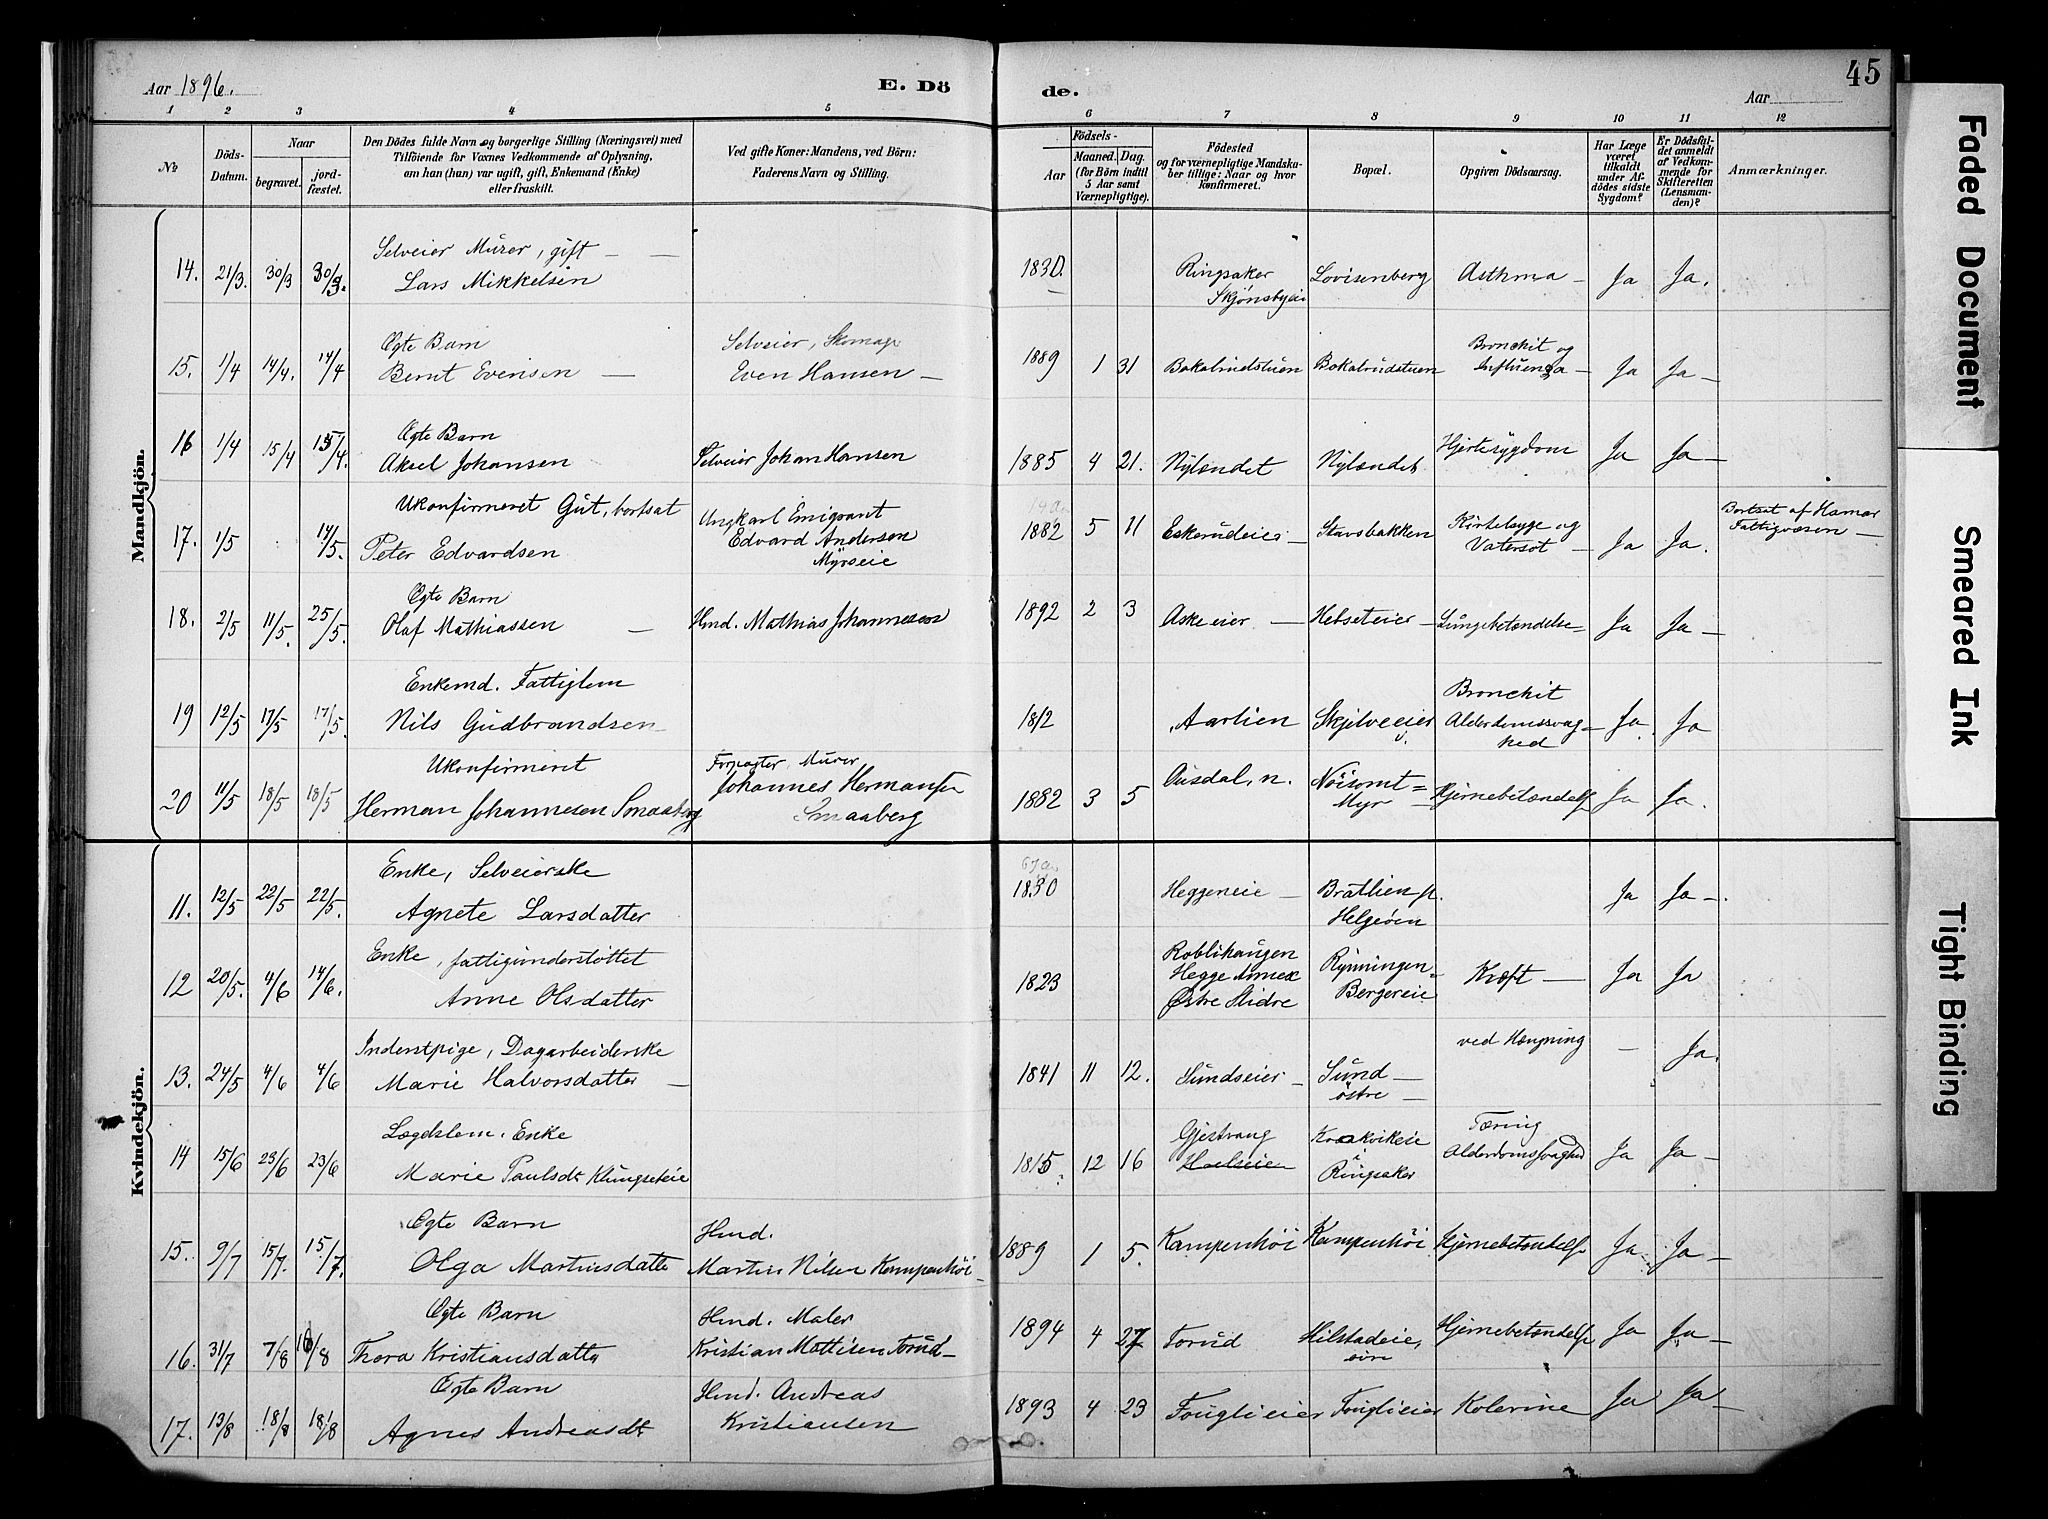 Aar 1896.
E. Dö
de.
Aar
45
1 2 3 4 5 6 7 8 9 10 11 12
No
Döds-Datum.
Naar
begravet.
jord-fæstet.
Den Dödes fulde Navn og borgerlige Stilling (Næringsvei) med
Tilföiende for Voxnes Vedkommende af Oplysning,
om han (hun) var ugift, gift, Enkemand (Enke)
eller fraskilt.
Ved gifte Koner: Mandens, ved Börn:
Faderens Navn og Stilling.
Födsels-
Aar
Maaned. Dag.
(for Börn indtil
5 Aar samt
Værnepligtige).
Födested
og for værnepligtige Mandska-
ber tillige: Naar og hvor
konfirmeret.
Bopæl.
Opgiven Dödsaarsag.
Har Læge
været
tilkaldt
under Af-
dödes sidste
Sygdom?
Er Dödsfal-
det anmeldt
af Vedkom-
mende for
Skifteretten
(Lensman-
den)?
Anmærkninger.
Mandkjön.
14. 21/3 30/3 30/3. Selveier Murer, gift —
Lars Mikkelsen
1830. Ringsaker
Skjønsbyeie
Lovisenberg Asthma — Ja Ja.
15. 1/4 14/4. 14/4 Ægte Barn
Bernt Evensen —
Selveier, Skomager
Even Hansen —
1889 1 31 Bakalrudstuen Bakalrudstuen Bronchit og
Influenza — Ja Ja —
16 1/4 15/4 15/4. Ægte Barn
Aksel Johansen
Selveier Johan Hansen
1885 4 21. Nylændet Nylændet Hjertesygdom Ja Ja —
17. 1/5 14/5. Ukonfirmeret Gut, bortsat
Peter Edvardsen
Ungkarl Emigrant
Edvard Andersen
Myrseie
1882 5 11 Eskerudeie — Stavsbakken Kirtelsyge og
Vatersot — Ja Ja. Bortsat af Hamar
Fattigvæsen —
18. 2/5 11/5. 25/5. Ægte Barn
Olaf Mathiassen —
Hmd. Mathias Johannesen
1892 2 3 Askeeier — Helseteier — Lungebetændelse — Ja Ja —
19 12/5 17/5 17/5. Enkemd. Fattiglem
Nils Gudbrandsen
1812 Aarlien Skjelveeier Bronchit
Alderdomssvag-
hed Ja. Ja
20 11/5 18/5 18/5 Ukonfirmeret
Herman Johannesen Smaaberg
Forpagter, Murer
Johannes Hermansen
Smaaberg
1882 3 5 Ausdal, n. Nöisomt=
Myr Hjernebetændelse Ja Ja.
Kvindekjön.
11. 12/5 22/5 22/5. Enke, Selveierske
Agnete Larsdatter
1830 Heggeneie — Bratlien p.
Helgeöen Ja Ja —.
12 20/5. 4/6 14/6. Enke, fattigunderstöttet
Anne Olsdatter
1823 Roblihaugen
Hegge Annex
Østre Slidre
Rynningen-
Bergereie Kræft — Ja Ja
13. 24/5 4/6 4/6 Inderstpige, Dagarbeiderske
Marie Halvorsdatter —
1841 11 12. Sundseier — Sund —
östre — ved Hængning — Ja.
14 15/6 23/6 23/6 Lægdslem. Enke
Marie Paulsdt Klungseteie
1815 12 16 Gjestvang
Hoelseien
Krakvikeie
i
Ringsaker
Tæring
Alderdomssvaghed Ja Ja —
15. 9/7 15/7. 15/7. Ægte Barn
Olga Martinsdatter
Hmd.
Martin Nilsen Kampenhöi
1889 1 5. Kampenhöi Kampenhöi Hjernebetændelse Ja Ja —
16. 31/7 7/8 16/8 Ægte Barn
Thora Kristiansdatter
Hmd. Maler
Kristian Mattisen Torud —
1894 4 27 Torud Hilstadeie,
Hjernebetændelse Ja Ja —
17. 13/8 18/8 18/8 Ægte Barn
Agnes Andreasdt
Hmd. Andreas
Kristiansen
1893 4 23 Fouglieier Fouglieier Kolerine Ja Ja —
Faded Document
Smeared Ink
Tight Binding